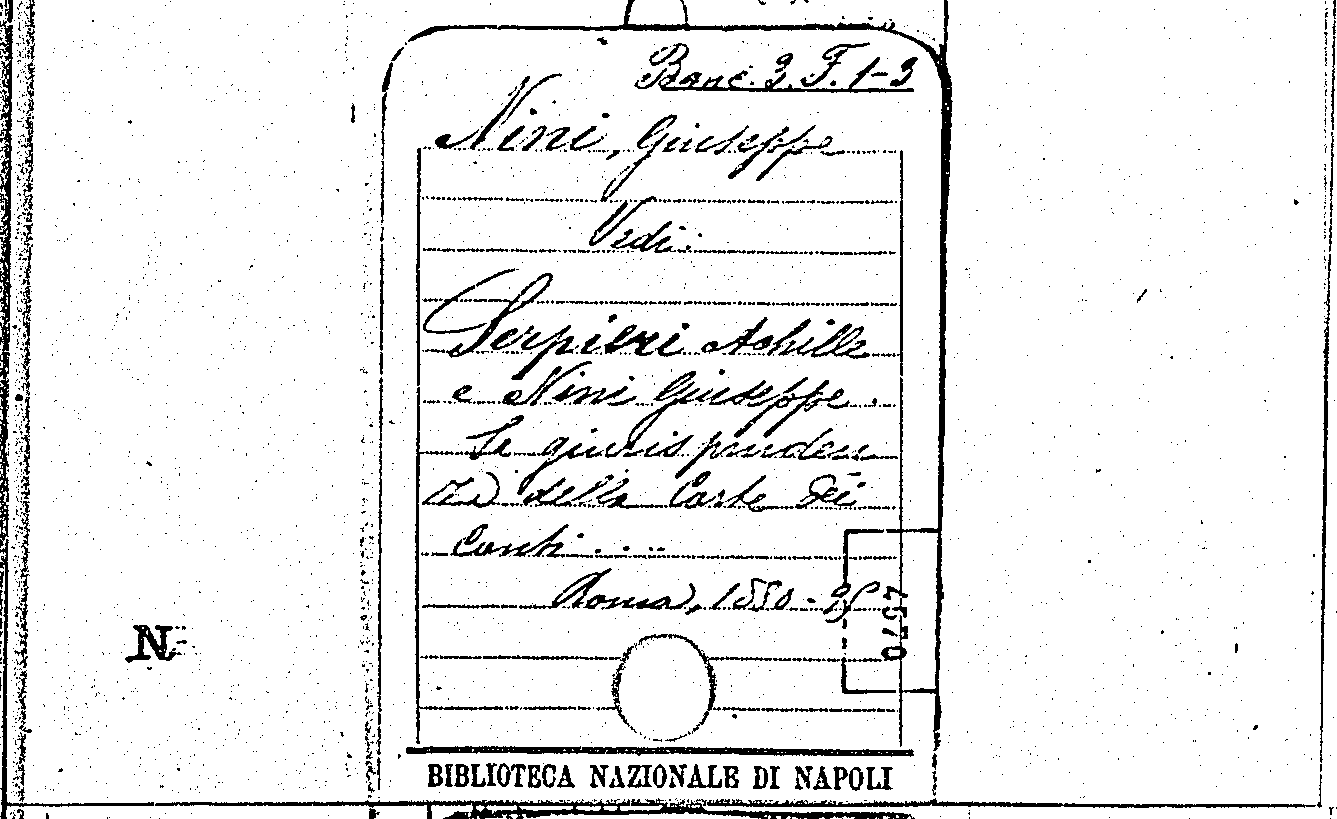 Banc. 3. F. 1-3
Nini, Giuseppe
Vedi:
Serpieri Achille
e Nini Giuseppe.
La giurispruden
za della Corte dei
Conti....
Roma, 1880-95
4570
N
BIBLIOTECA NAZIONALE DI NAPOLI